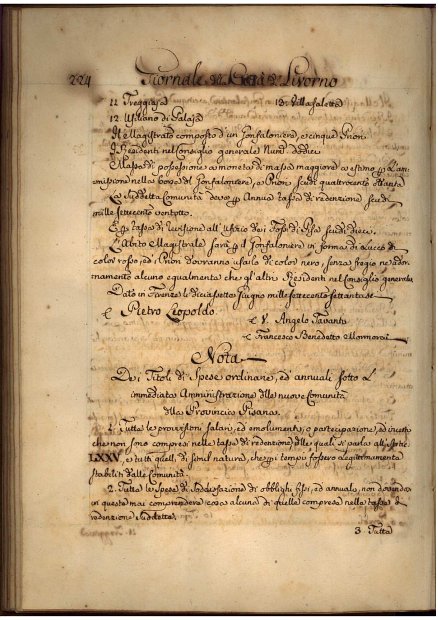 224 Giornale della Città di Livorno
11 Treggiaja 13. Villa Saletta
12 Usiliano di Palaja
Il Magistrato composto d'un Gonfaloniere, e cinque Priori
I Residenti nel Consiglio generale Num.
Massa di possessione a moneta di massa maggiore o estimo per l'am-
missione nella borsa del Gonfaloniere, e Priori scudi quattrocento
La suddetta Comunità deve per Annua tassa di redenzione scudi
mille settecento ventotto.
E per tassa di all'Ufizio dei Fossi di Pisa scudi dieci.
L'abito Magistrale sarà per il Gonfaloniere in forma di Lucco di
color rosso, ed i Priori dovranno usarlo di color nero, senza fregio ne ador-
namento alcuno egualmente che gl'altri Residenti nel Consiglio generale
Dato in Firenze li diciassette Giugno mille settecento settantasei
Pietro Leopoldo.
V. Angelo Tavanti
Francesco Benedetto Mormorai
Nota
De Titoli di Spese ordinarie, ed annuali sotto l'
immediata Amministrazione delle nuove Comunità
della Provincia Pisana.
1. Tutte le provvisioni salari, ed emolumenti, o partecipazione, ed incerti
che non sono compresi nelle tasse di redenzione delle quali si parla all'Artic.
LXXV. e tutti quelli di simil natura, che pei tempi fossero legittimamente
stabiliti dalle Comunità.
2. Tutte le Spese di Sodisfazione di obblighi fissi, ed annuali, non dovendo
in queste mai comprendersi cosa alcuna di quelle comprese nella tassa di
redenzione suddetta.
3. Tutte